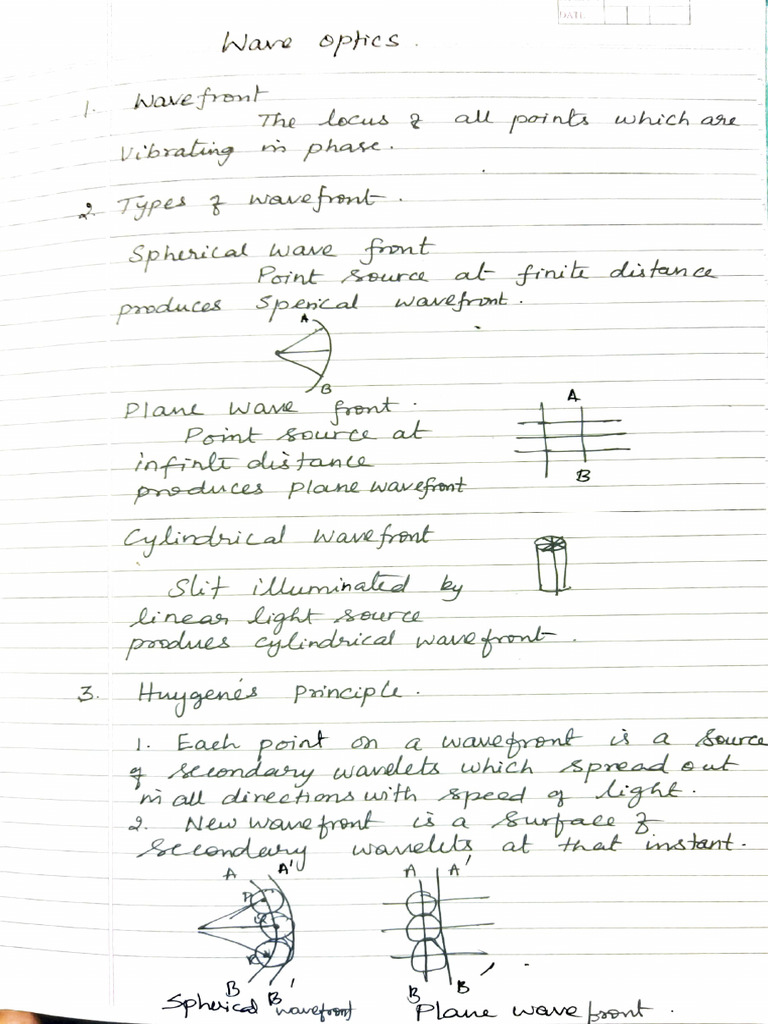 DATE
Wave optics.
1. Wavefront
The locus of all points which are
vibrating in phase.
2. Types of wavefront.
Spherical wave front
Point source at finite distance
produces Sperical wavefront.
A
B
Plane wave front.
Point source at
infinite distance
produces plane wavefront
A
B
Cylindrical wavefront
Slit illuminated by
linear light source
produes cylindrical wavefront.
3. Huygene's principle.
1. Each point on a wavefront is a source
of secondary wavelets which spread out
in all directions with speed of light.
2. New wavefront is a surface of
secondary wavelets at that instant.
A A'
P
B B'
Spherical wavefront
A A'
B B'
Plane wavefront.